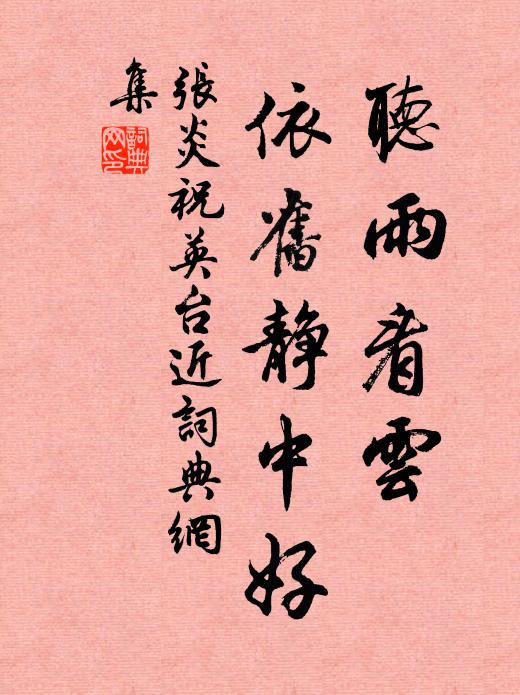 聽雨看雲
依舊静中好
張炎祝英台近詞典網
集
詞典網印